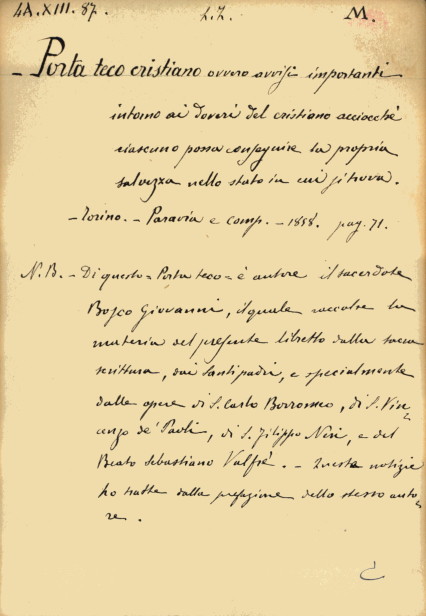 4A. XIII. 87. L.L. M.
- Porta teco cristiano ovvero avvisi importanti
intorno ai doveri del cristiano acciocchè
ciascuno possa conseguire la propria
salvezza nello stato in cui si trova.
- Torino. - Paravia e comp. - 1858. pag. 71.
N. B. - Di questo = Porta teco = è autore il sacerdote
Bosco Giovanni, il quale raccolse la
materia del presente libretto dalla sacra
scrittura, dai santi padri, e specialmente
dalle opere di S. Carlo Borromeo, di S. Vin=
cenzo de' Paoli, di S. Filippo Neri, e del
Beato Sebastiano Valfrè. - Queste notizie
ho tratte dalla prefazione dello stesso auto=
re.